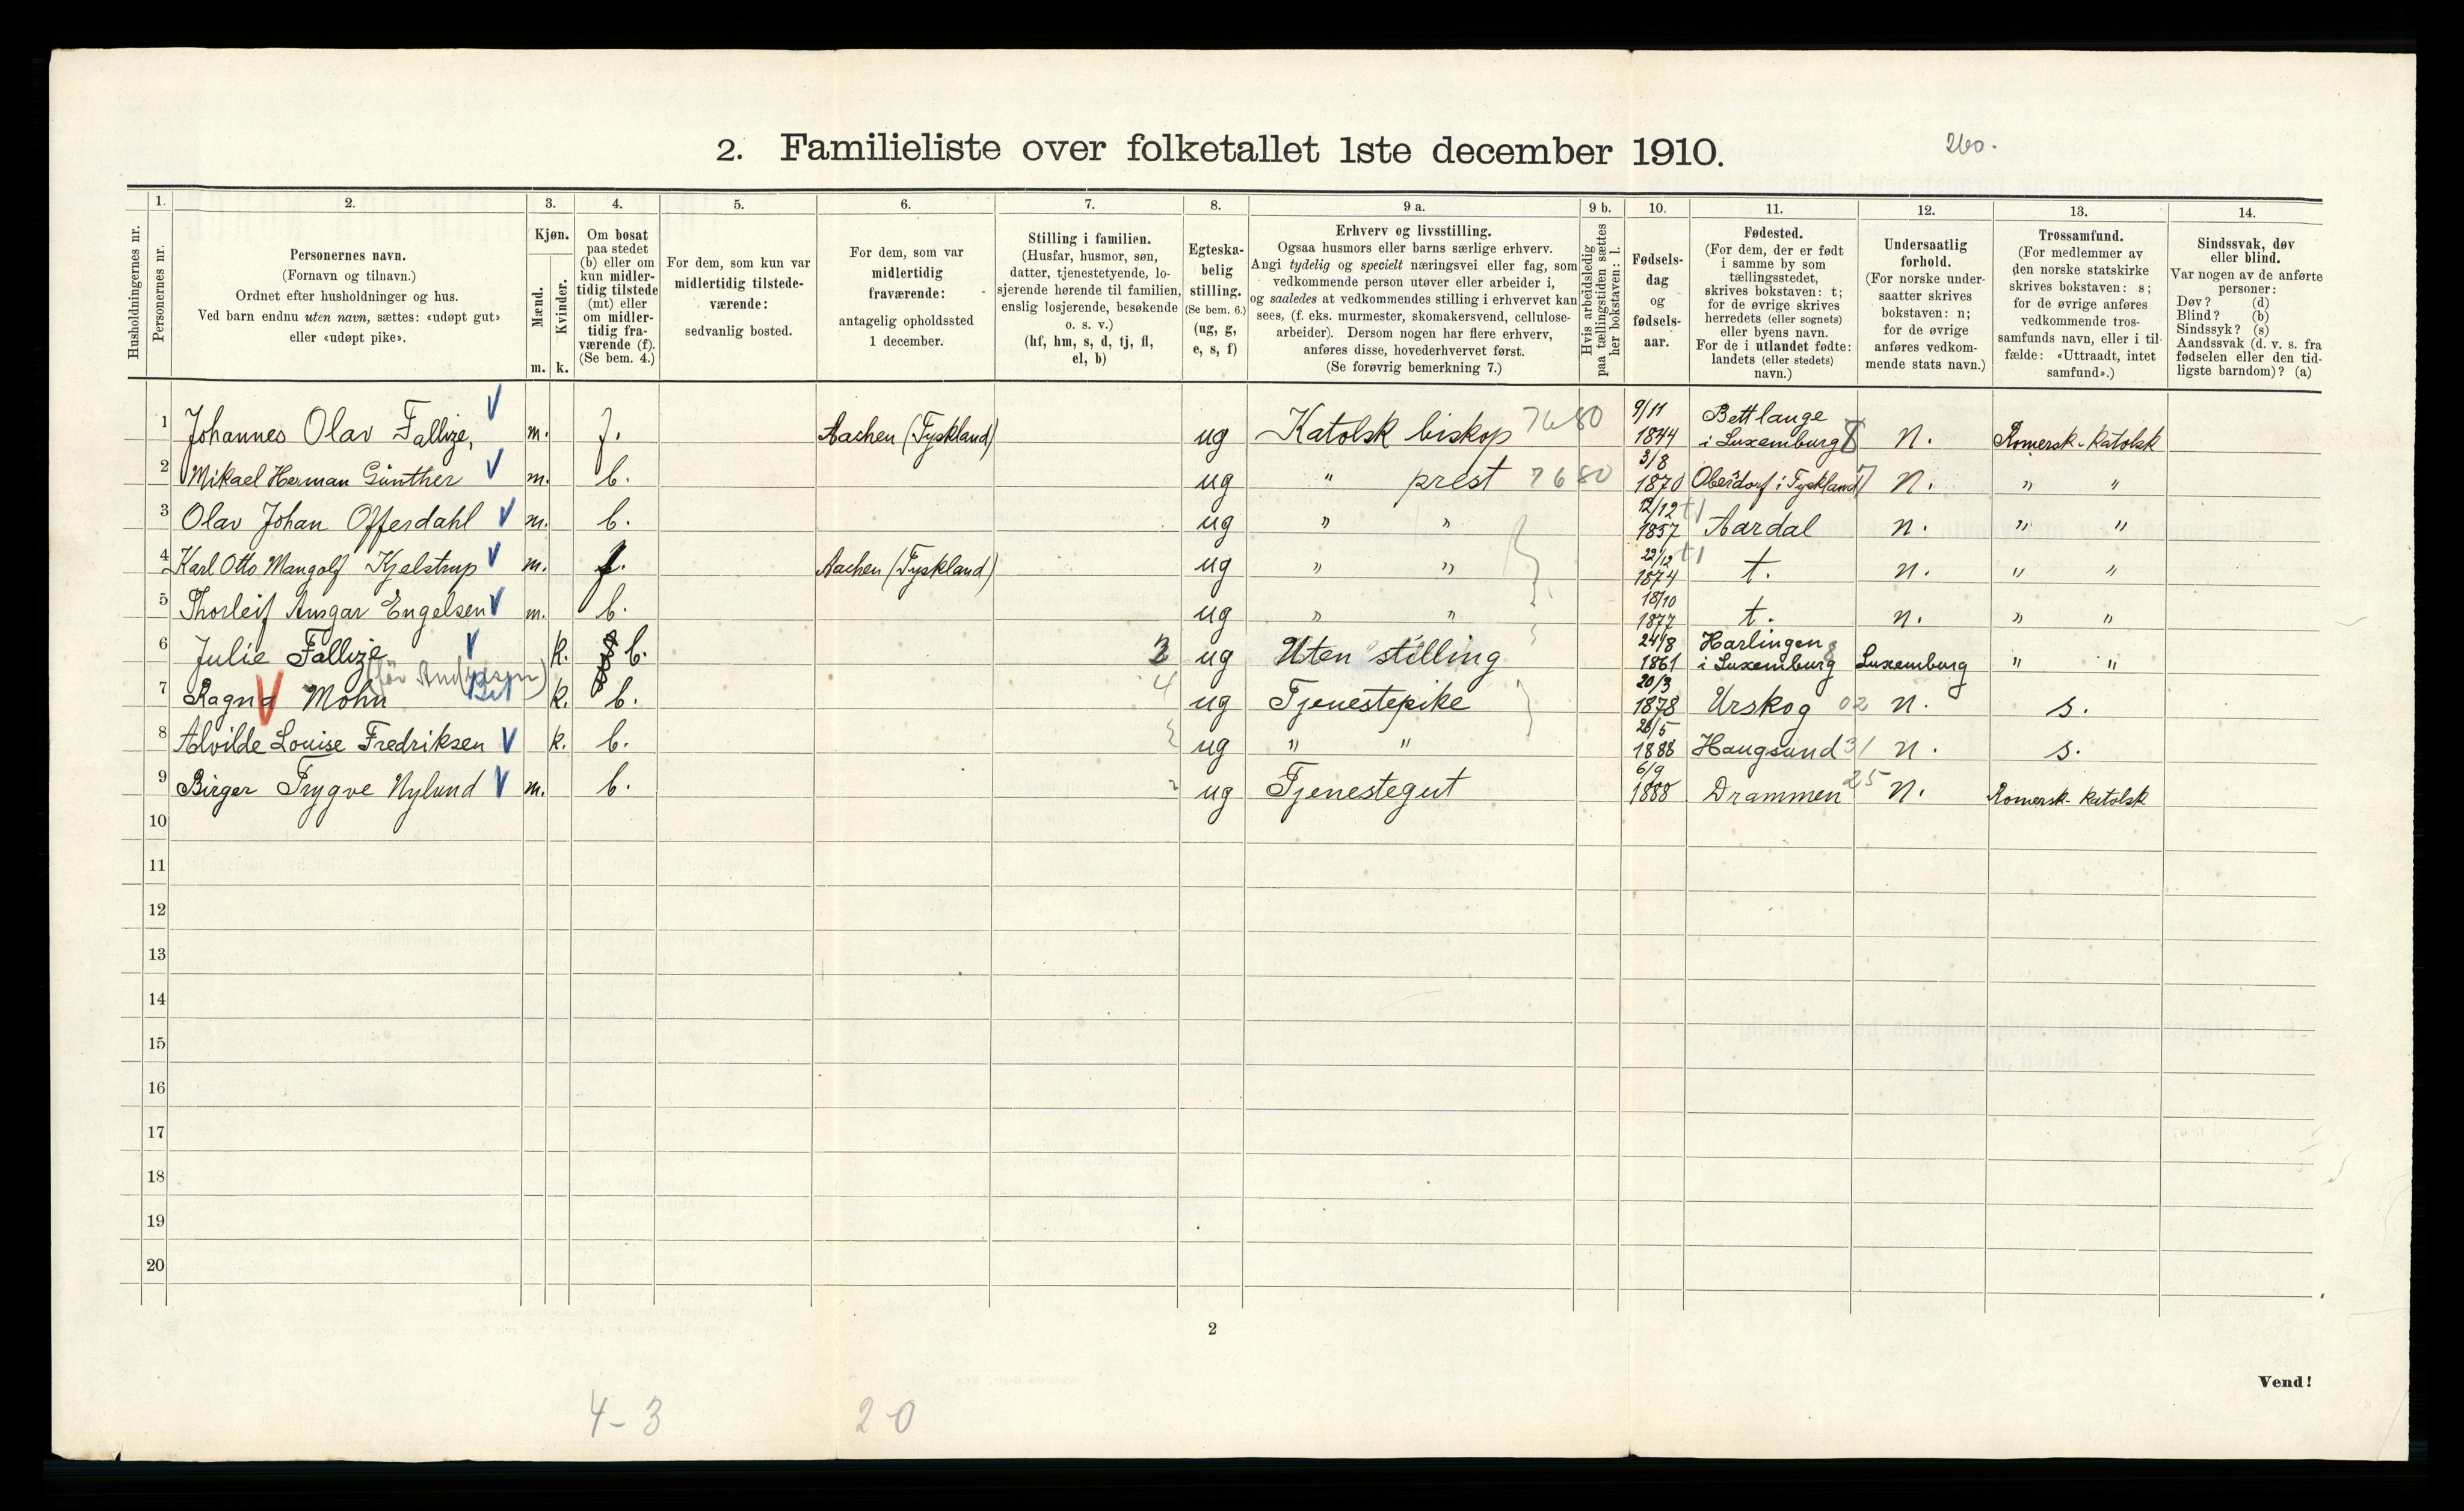 2. Familieliste over folketallet 1ste december 1910.
260.
Husholdningernes nr.
1. Personernes nr.
2. Personernes navn. (Fornavn og tilnavn.) Ordnet efter husholdninger og hus. Ved barn endnu uten navn, sættes: «udøpt gut» eller «udøpt pike».
3. Kjøn. Mænd. m. Kvinder. k.
4. Om bosat paa stedet (b) eller om kun midlertidig tilstede (mt) eller om midlertidig fraværende (f). (Se bem. 4.)
5. For dem, som kun var midlertidig tilstedeværende: sedvanlig bosted.
6. For dem, som var midlertidig fraværende: antagelig opholdssted 1 december.
7. Stilling i familien. (Husfar, husmor, søn, datter, tjenestetyende, losjerende hørende til familien, enslig losjerende, besøkende o. s. v.) (hf, hm, s, d, tj, fl, el, b)
8. Egteskabelig stilling. (Se bem. 6.) (ug, g, e, s, f)
9 a. Erhverv og livsstilling. Ogsaa husmors eller barns særlige erhverv. Angi tydelig og specielt næringsvei eller fag, som vedkommende person utøver eller arbeider i, og saaledes at vedkommendes stilling i erhvervet kan sees, (f. eks. murmester, skomakersvend, cellulosearbeider). Dersom nogen har flere erhverv, anføres disse, hovederhvervet først. (Se forøvrig bemerkning 7.)
9 b. Hvis arbeidsledig paa tællingstiden sættes her bokstaven: l.
10. Fødselsdag og fødselsaar.
11. Fødested. (For dem, der er født i samme by som tællingsstedet, skrives bokstaven: t; for de øvrige skrives herredets (eller sognets) eller byens navn. For de i utlandet fødte: landets (eller stedets) navn.)
12. Undersaatlig forhold. (For norske undersaatter skrives bokstaven: n; for de øvrige anføres vedkommende stats navn.)
13. Trossamfund. (For medlemmer av den norske statskirke skrives bokstaven: s; for de øvrige anføres vedkommende trossamfunds navn, eller i tilfælde: «Uttraadt, intet samfund».)
14. Sindssvak, døv eller blind. Var nogen av de anførte personer: Døv? (d) Blind? (b) Sindssyk? (s) Aandssvak (d. v. s. fra fødselen eller den tidligste barndom)? (a)
1 Johannes Olav Fallize, m. f. Aachen (Tyskland) ug Katolsk biskop 7680 9/11 1844 Bettlange i Luxemburg 8 n. Romersk-katolsk
2 Mikael Herman Günther m. b. ug " prest 7680 3/8 1870 Oberdorf i Tyskland 7 n. " "
3 Olav Johan Offerdahl m. b. ug " " 12/12 1857 Aardal n. " "
4 Karl Otto Mangolf Kjelstrup m. f. Aachen (Tyskland) ug " " 22/12 1874 t. n. " "
5 Thorleif Ansgar Engelsen m. b. ug " " 18/10 1877 t. n. " "
6 Julie Fallize k. b. 3 ug Uten stilling 24/8 1861 Harlingen i Luxemburg 8 Luxemburg " "
7 Ragna Mohn k. b. 4 ug Tjenestepike 20/3 1878 Urskog 02 n. s.
8 Alvilde Louise Fredriksen k. b. ug " " 26/5 1888 Haugsund 31 n. s.
9 Birger Trygve Nylund m. b. ug Tjenestegut 6/9 1888 Drammen 25 n. Romersk-katolsk
10
11
12
13
14
15
16
17
18
19
20
2
Vend!
4-3 2-0